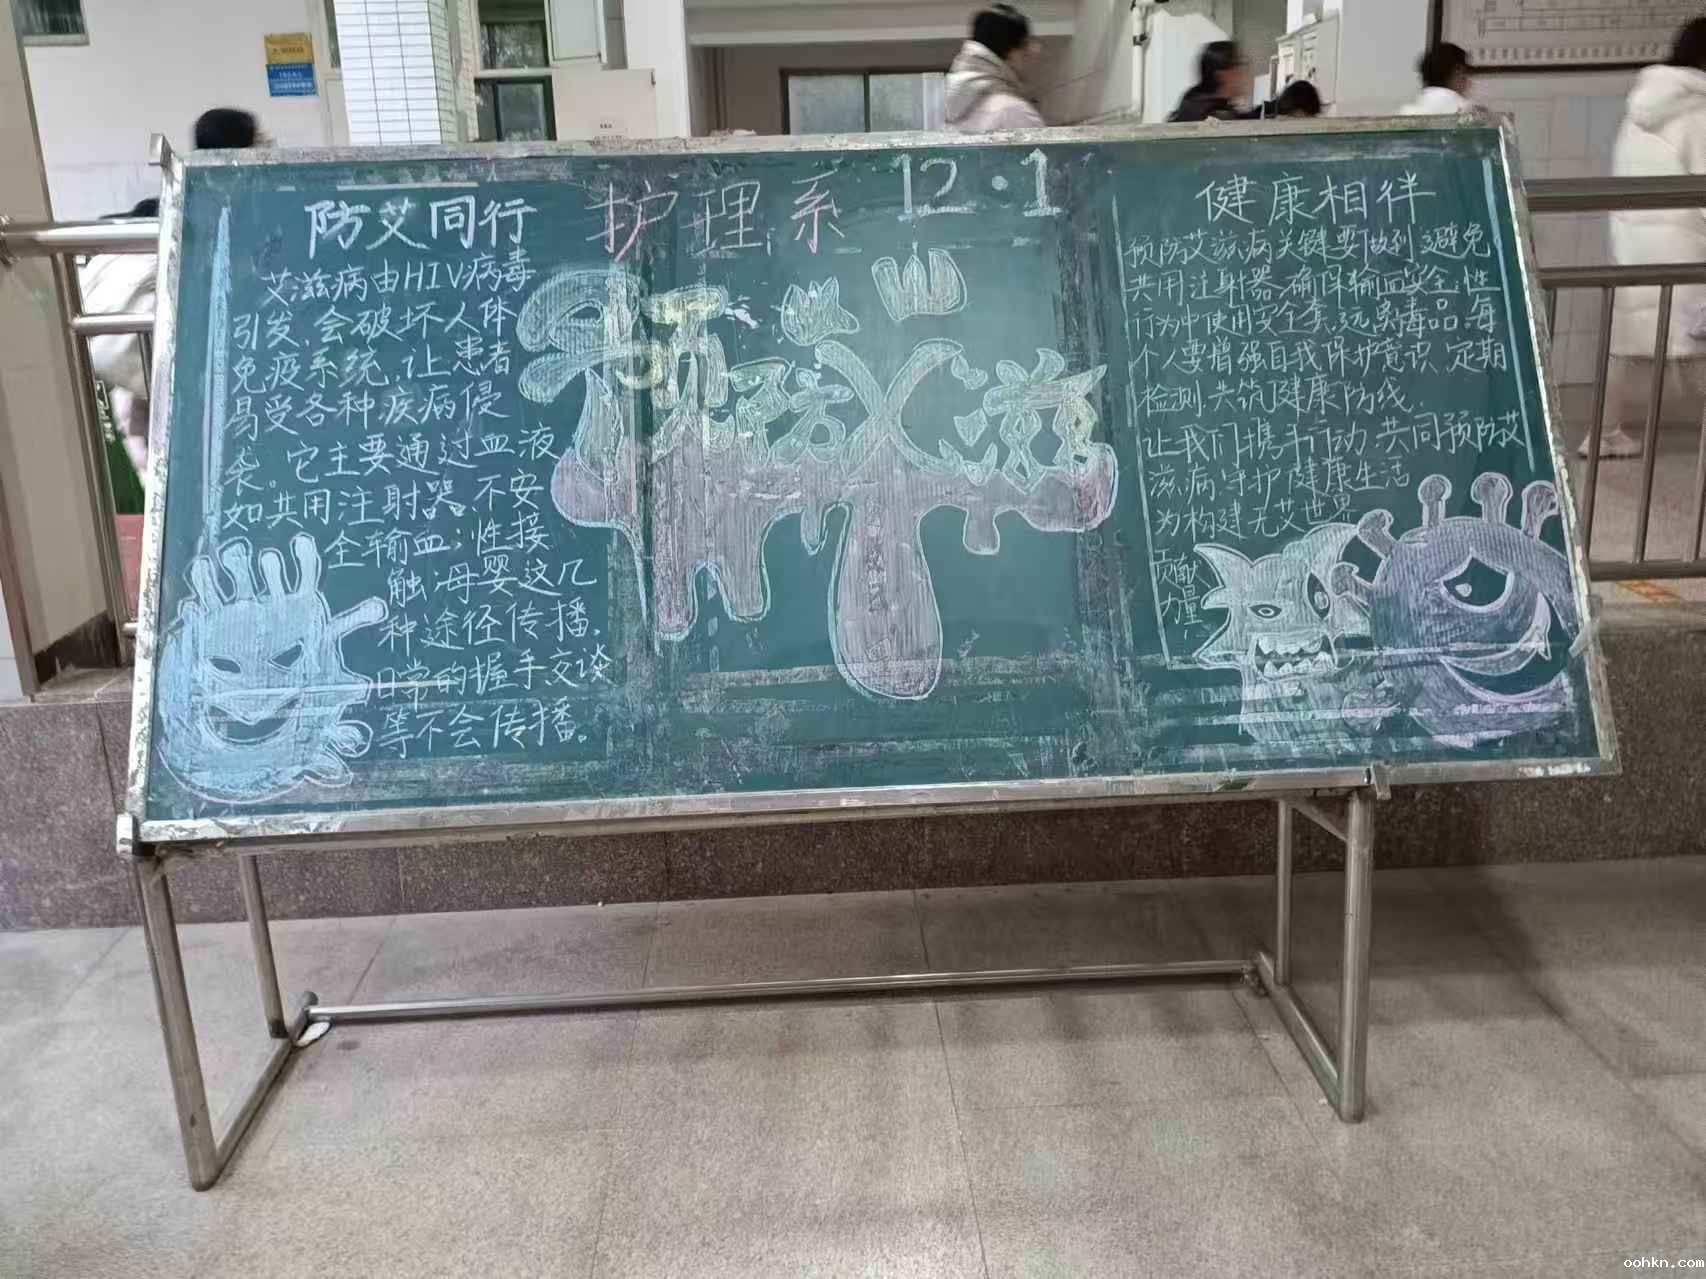 护理系 12·1
防艾同行
艾滋病由HIV病毒
引发,会破坏人体
免疫系统,让患者
易受各种疾病侵
袭。它主要通过血液
如共用注射器、不安
全输血;性接
触;母婴这几
种途径传播,
日常的握手交谈
等不会传播。
预防艾滋
健康相伴
预防艾滋病关键要做到避免
共用注射器,确保输血安全,性
行为中使用安全套,远离毒品,每
个人要增强自我保护意识,定期
检测,共筑健康防线.
让我们携手行动,共同预防艾
滋病,守护健康生活
为构建无艾世界
贡献
力量!
oohkn.com